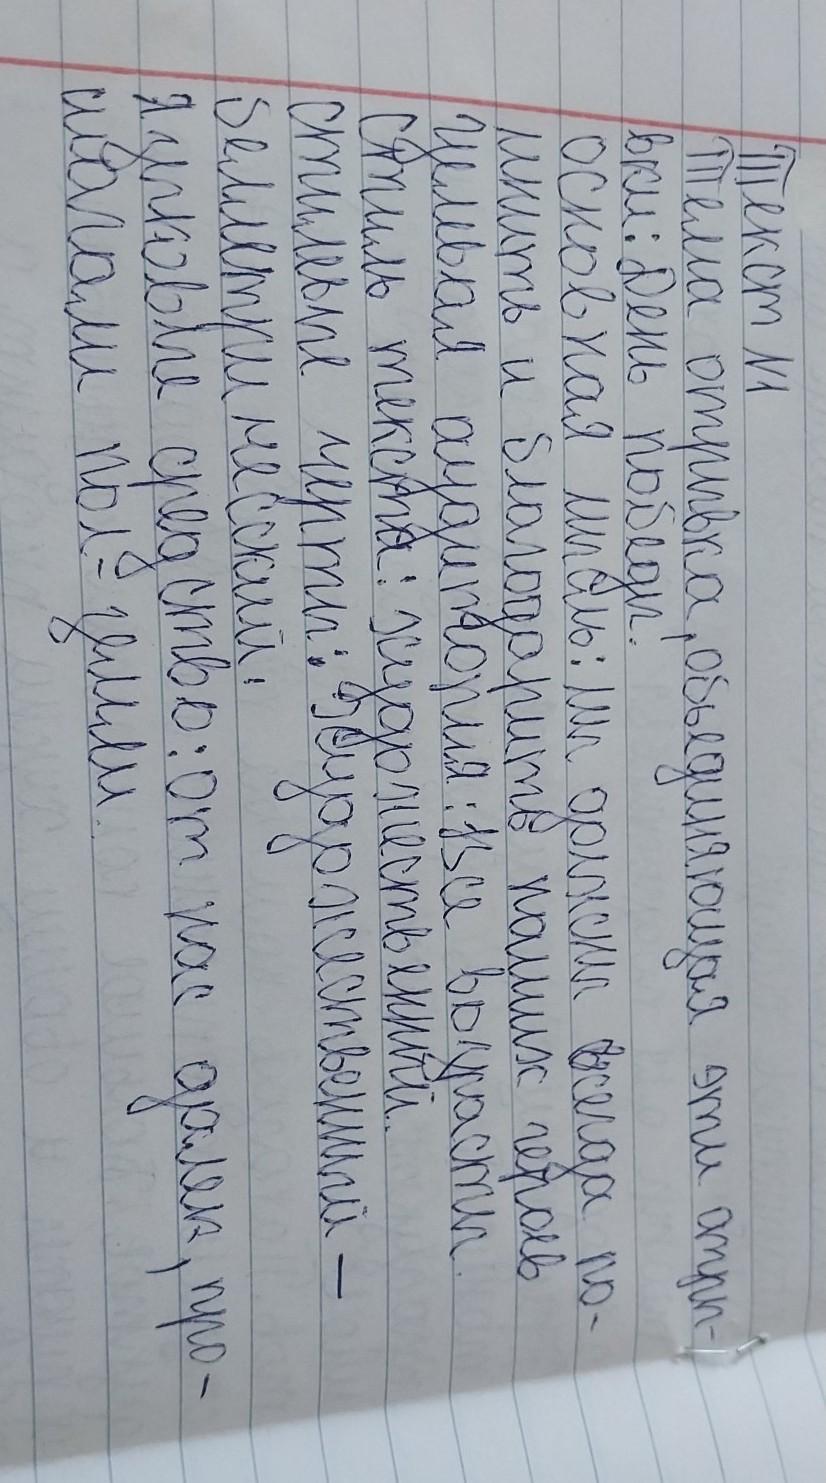 Текст №1
Тема отрывка, объединяющая эти отры-
вки: День победы.
основная мысль: мы должны всегда по-
мнить и благодарить наших героев
Целевая аудитория: все возрасты.
Стиль текста: художественный.
стилевые черты: художественный –
беллетрический.
языковые средство: от нас далек, про-
шагали